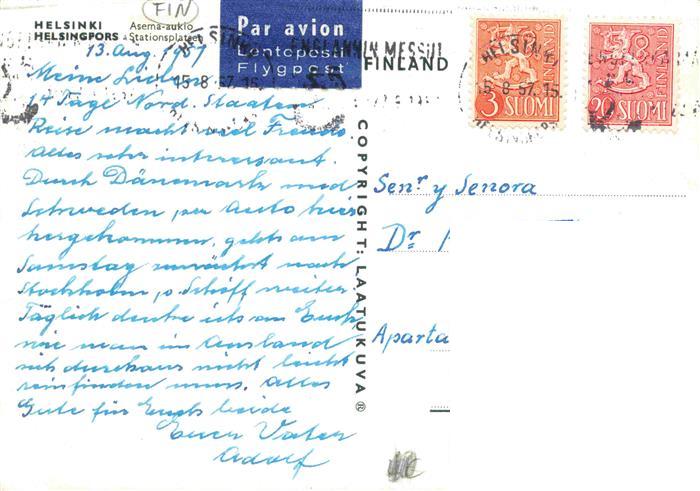 FIN
HELSINKI Asema-aukio
HELSINGFORS Stationsplatsen
Par avion
Lentoposti
Flygpost
ENGLANNIN MESSUT
FINLAND
HELSINKI
15.8.57.15
HELSINKI
15.8.57.15
3 SUOMI
FINLAND
20 SUOMI
FINLAND
13. Aug. 1957
Meine Lieben
14 Tage Nord. Staaten
Reise macht viel Freude
alles sehr interessant.
Durch Dänemark und
Schweden, per Auto hier
hergekommen, gehts am
Samstag zunächst nach
Stockholm, p. Schiff weiter.
Täglich denke ich an Euch
wie man im Ausland
sich durchaus nicht leicht
reinfinden muss. Alles
Gute für Euch beide
Euer Vater
Adolf
COPYRIGHT: LAATUKUVA ®
Senr y Senora
Dr
Aparta